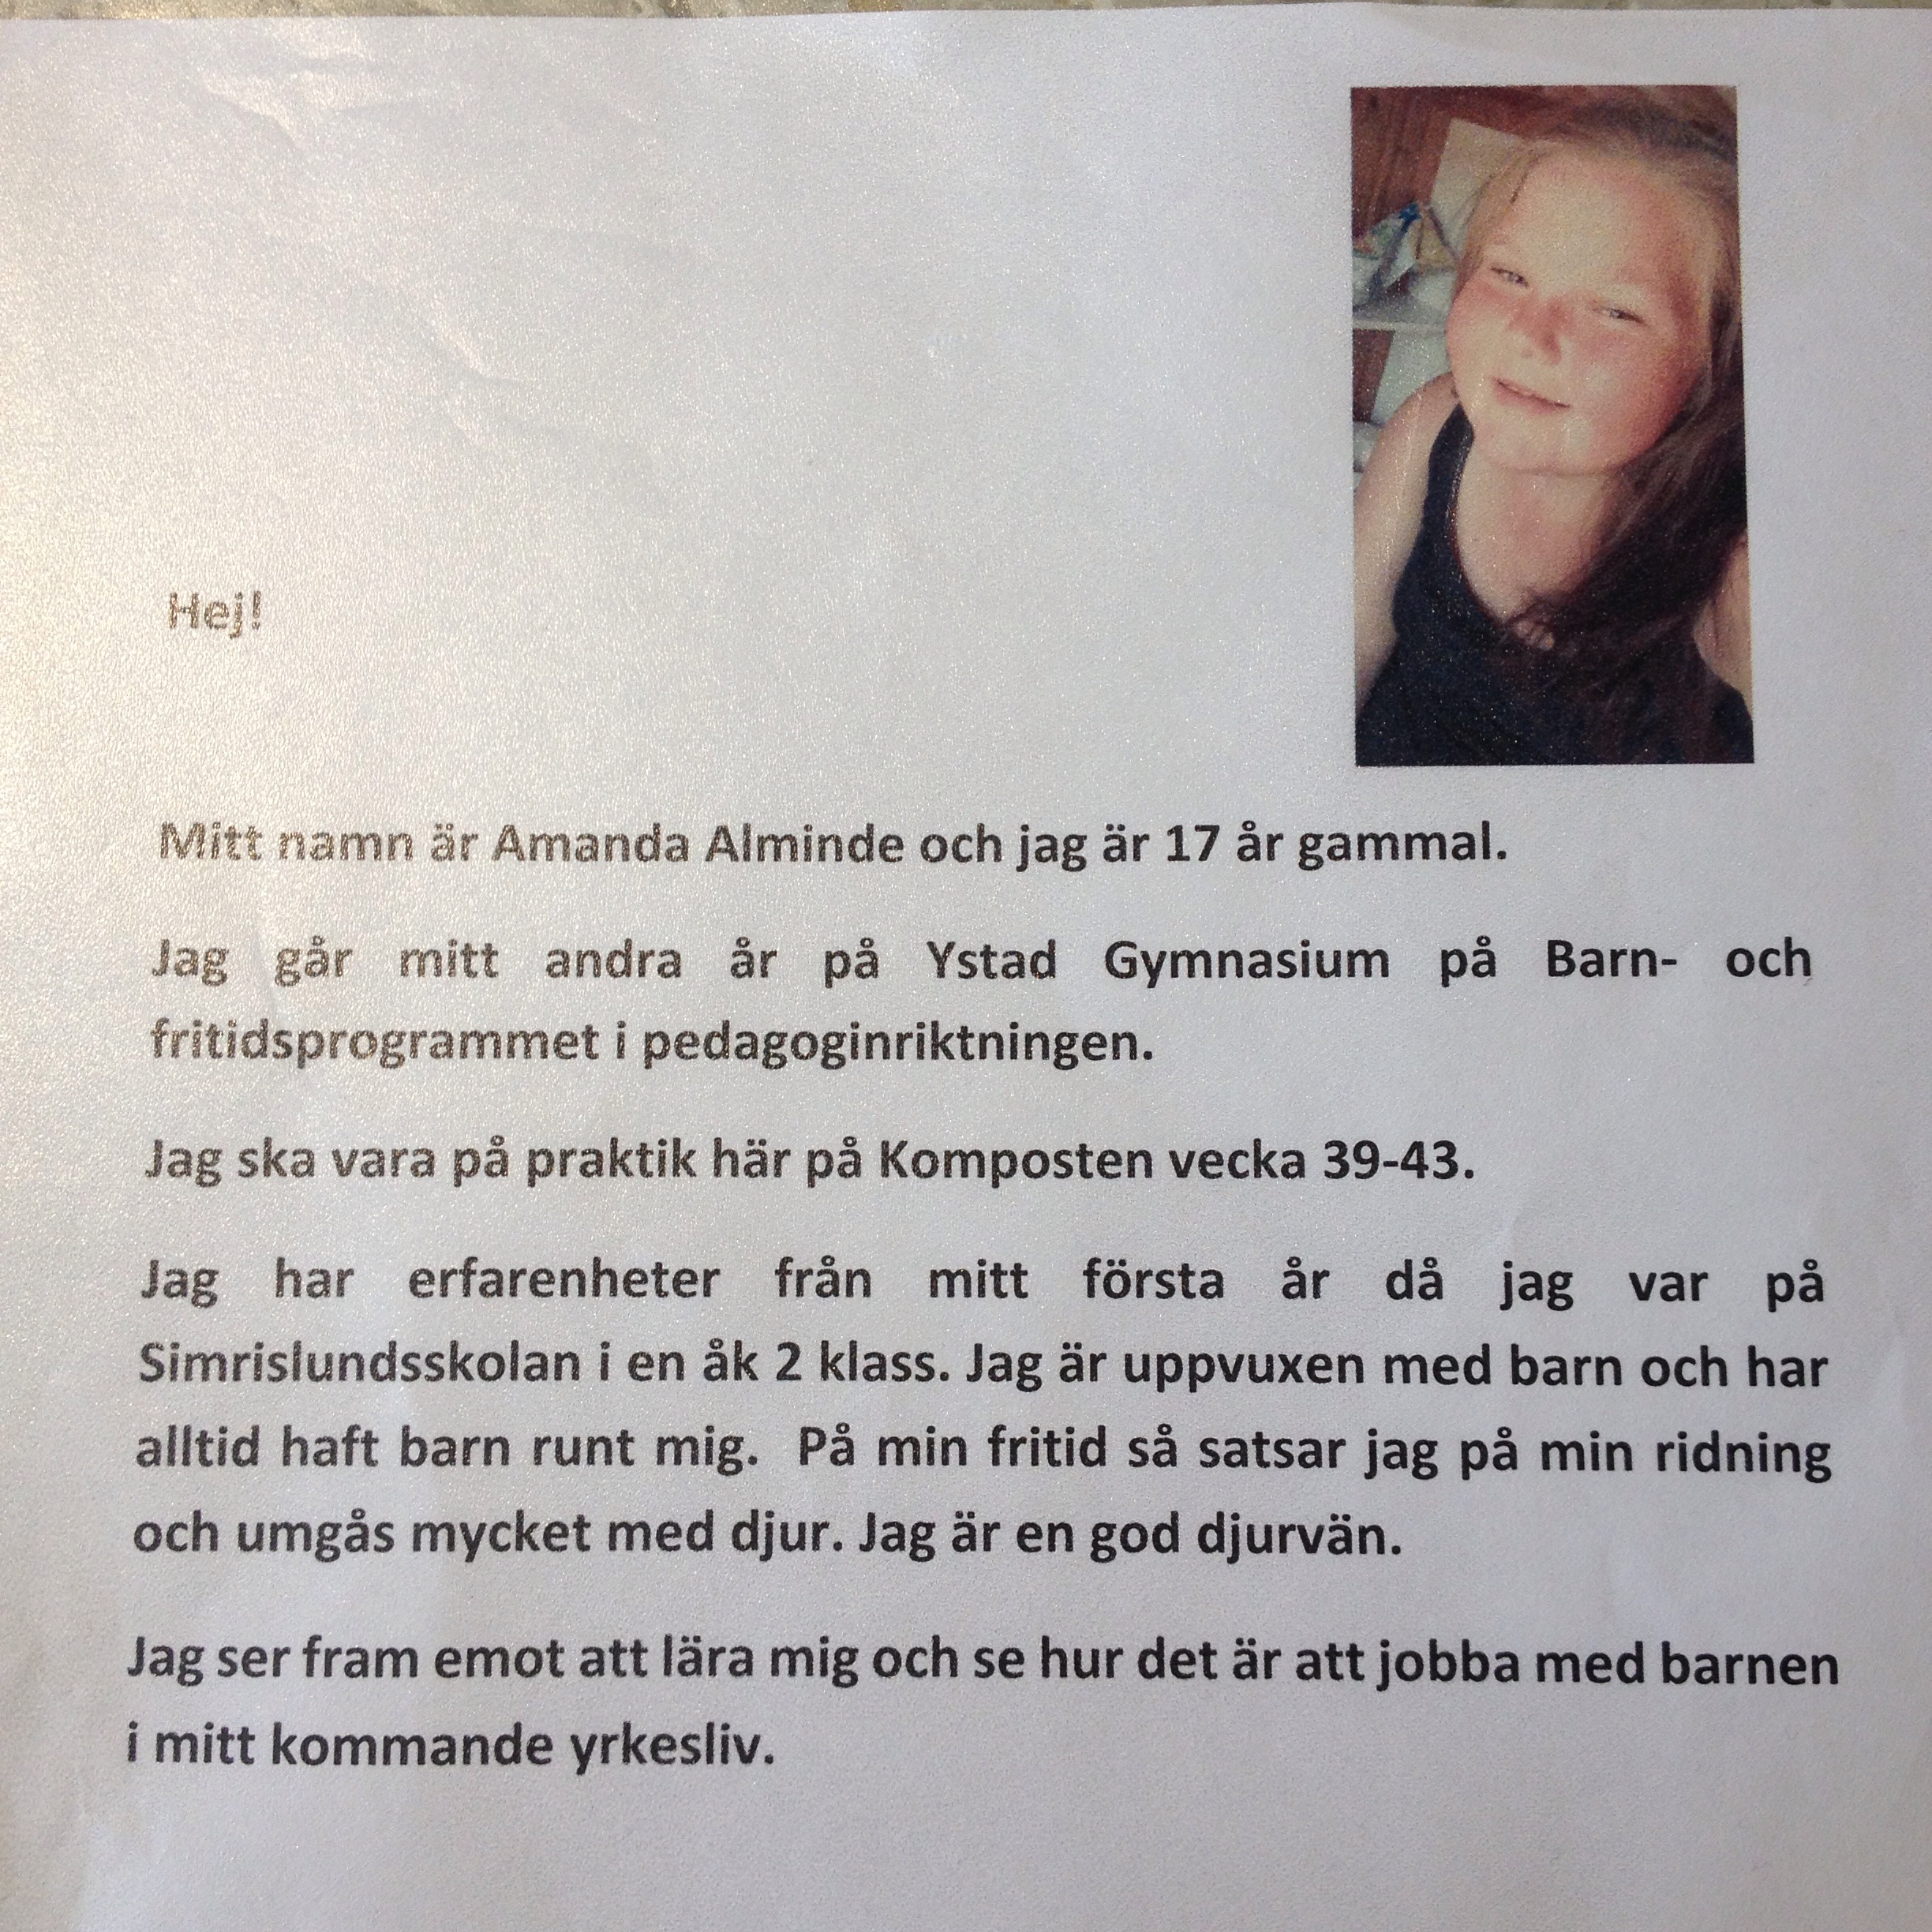 Hej!
Mitt namn är Amanda Alminde och jag är 17 år gammal.
Jag går mitt andra år på Ystad Gymnasium på Barn- och
fritidsprogrammet i pedagoginriktningen.
Jag ska vara på praktik här på Komposten vecka 39-43.
Jag har erfarenheter från mitt första år då jag var på
Simrislundsskolan i en åk 2 klass. Jag är uppvuxen med barn och har
alltid haft barn runt mig.  På min fritid så satsar jag på min ridning
och umgås mycket med djur. Jag är en god djurvän.
Jag ser fram emot att lära mig och se hur det är att jobba med barnen
i mitt kommande yrkesliv.